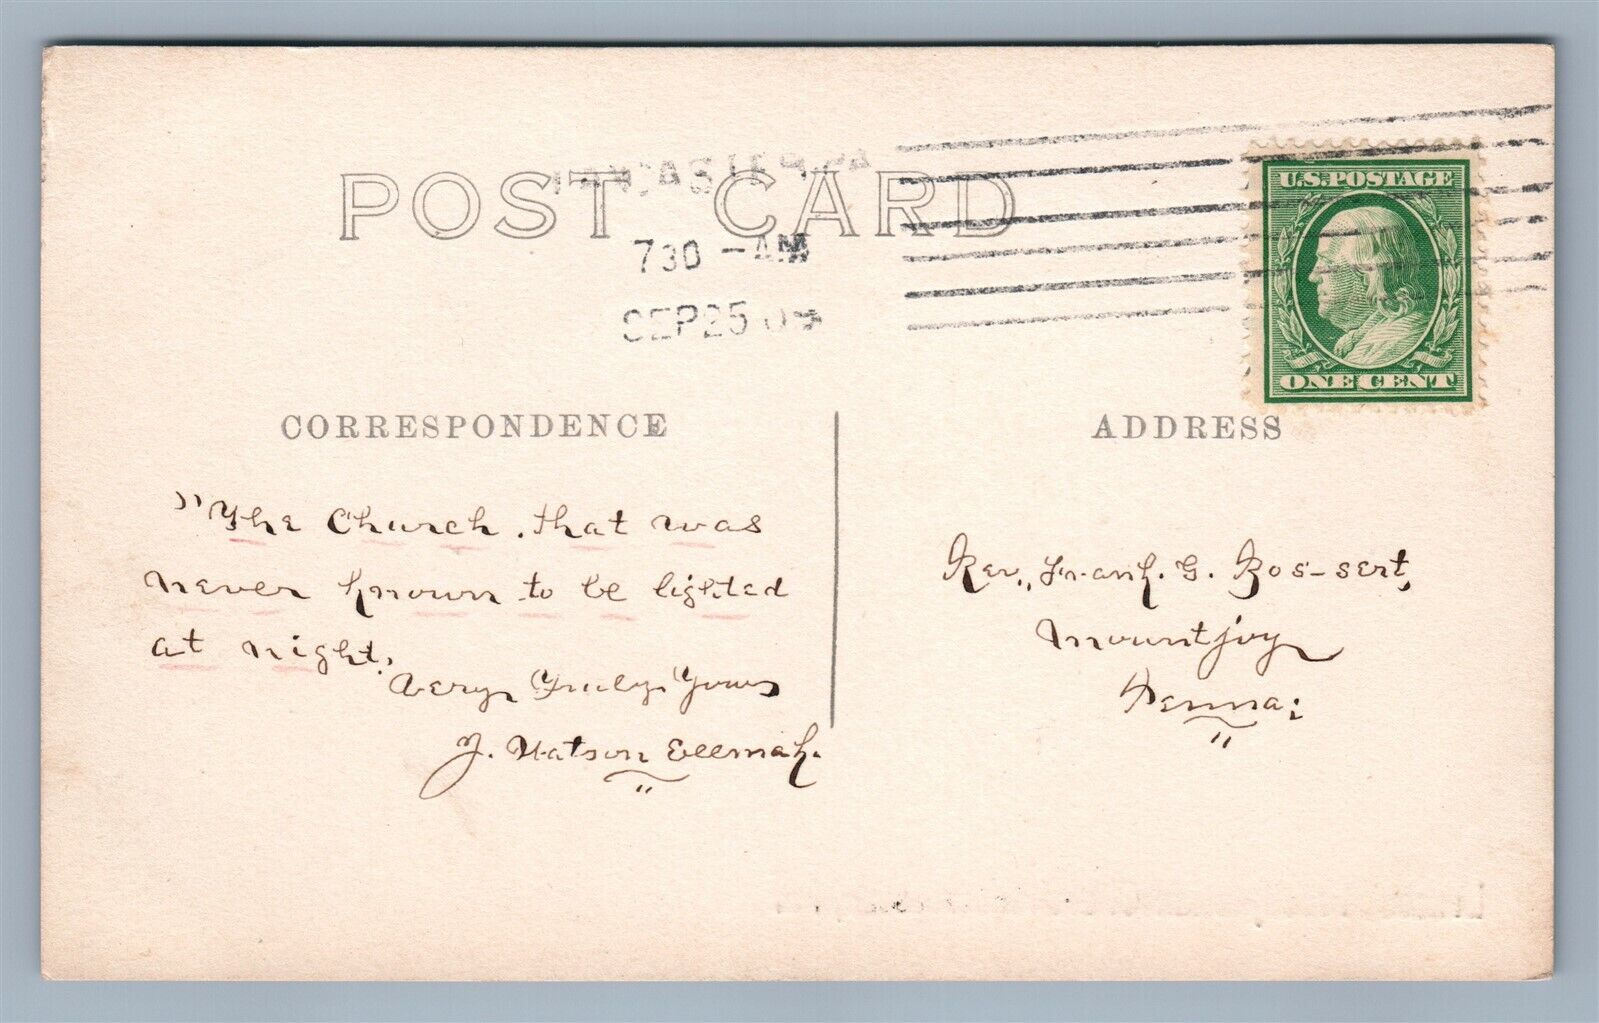 LANCASTER, PA
POST CARD
730 - AM
SEP 25 09
U.S. POSTAGE
ONE CENT
CORRESPONDENCE
ADDRESS
"The Church. that was
never known to be lighted
at night."
Very Truly Yours
J. Watson
Rev., Frank. G. Bos-sert,
Mountjoy
Penna: